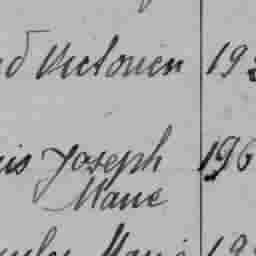 d Victorien 19
is Joseph 196
Marie
Marie 19